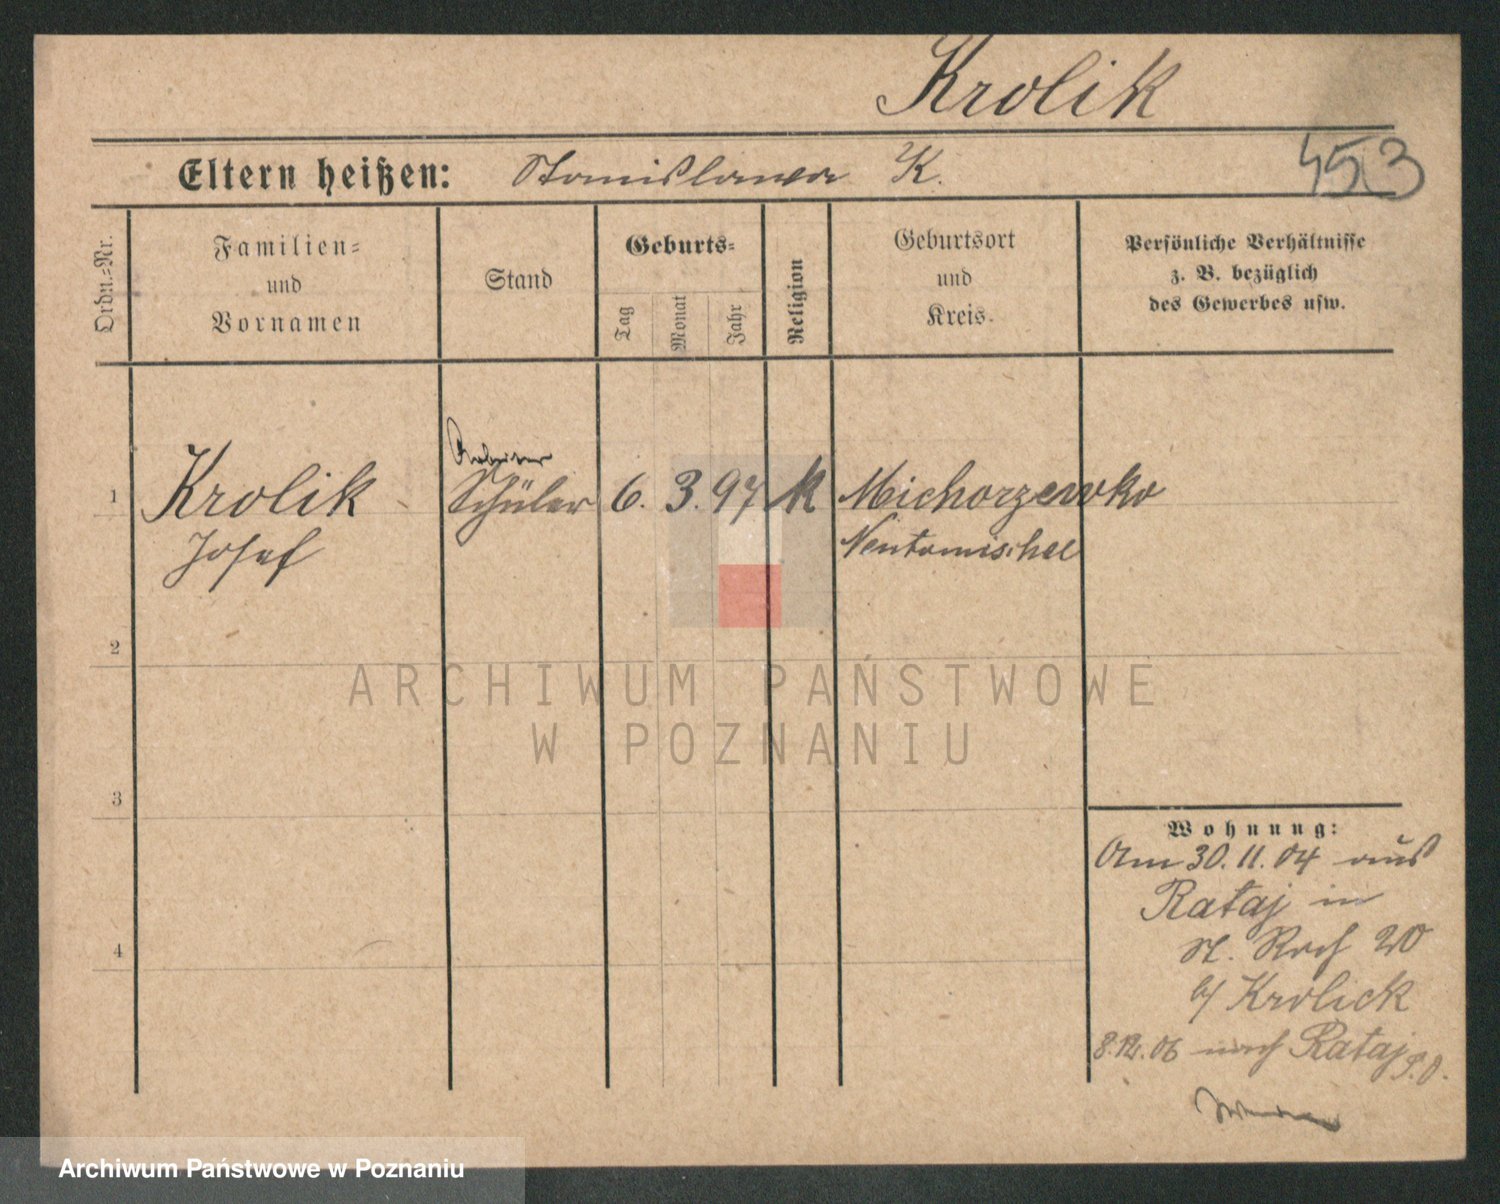 Krolik
Eltern heißen: Stanislawa K.
453
Ordn.-Nr.
Familien-
und
Vornamen
Stand
Geburts-
Tag
Monat
Jahr
Religion
Geburtsort
und
Kreis.
Persönliche Verhältnisse
z. B. bezüglich
des Gewerbes usw.
Arbeiter
1 Krolik Schüler 6. 3. 97 k Michorzewko
Josef Neutomischel
2
3
4
Wohnung:
Am 30.11.04 aus
Rataj in
St. Roch 20
b/ Krolick
8.12.06 nach Rataj P.O.
ARCHIWUM PAŃSTWOWE
W POZNANIU
Archiwum Państwowe w Poznaniu